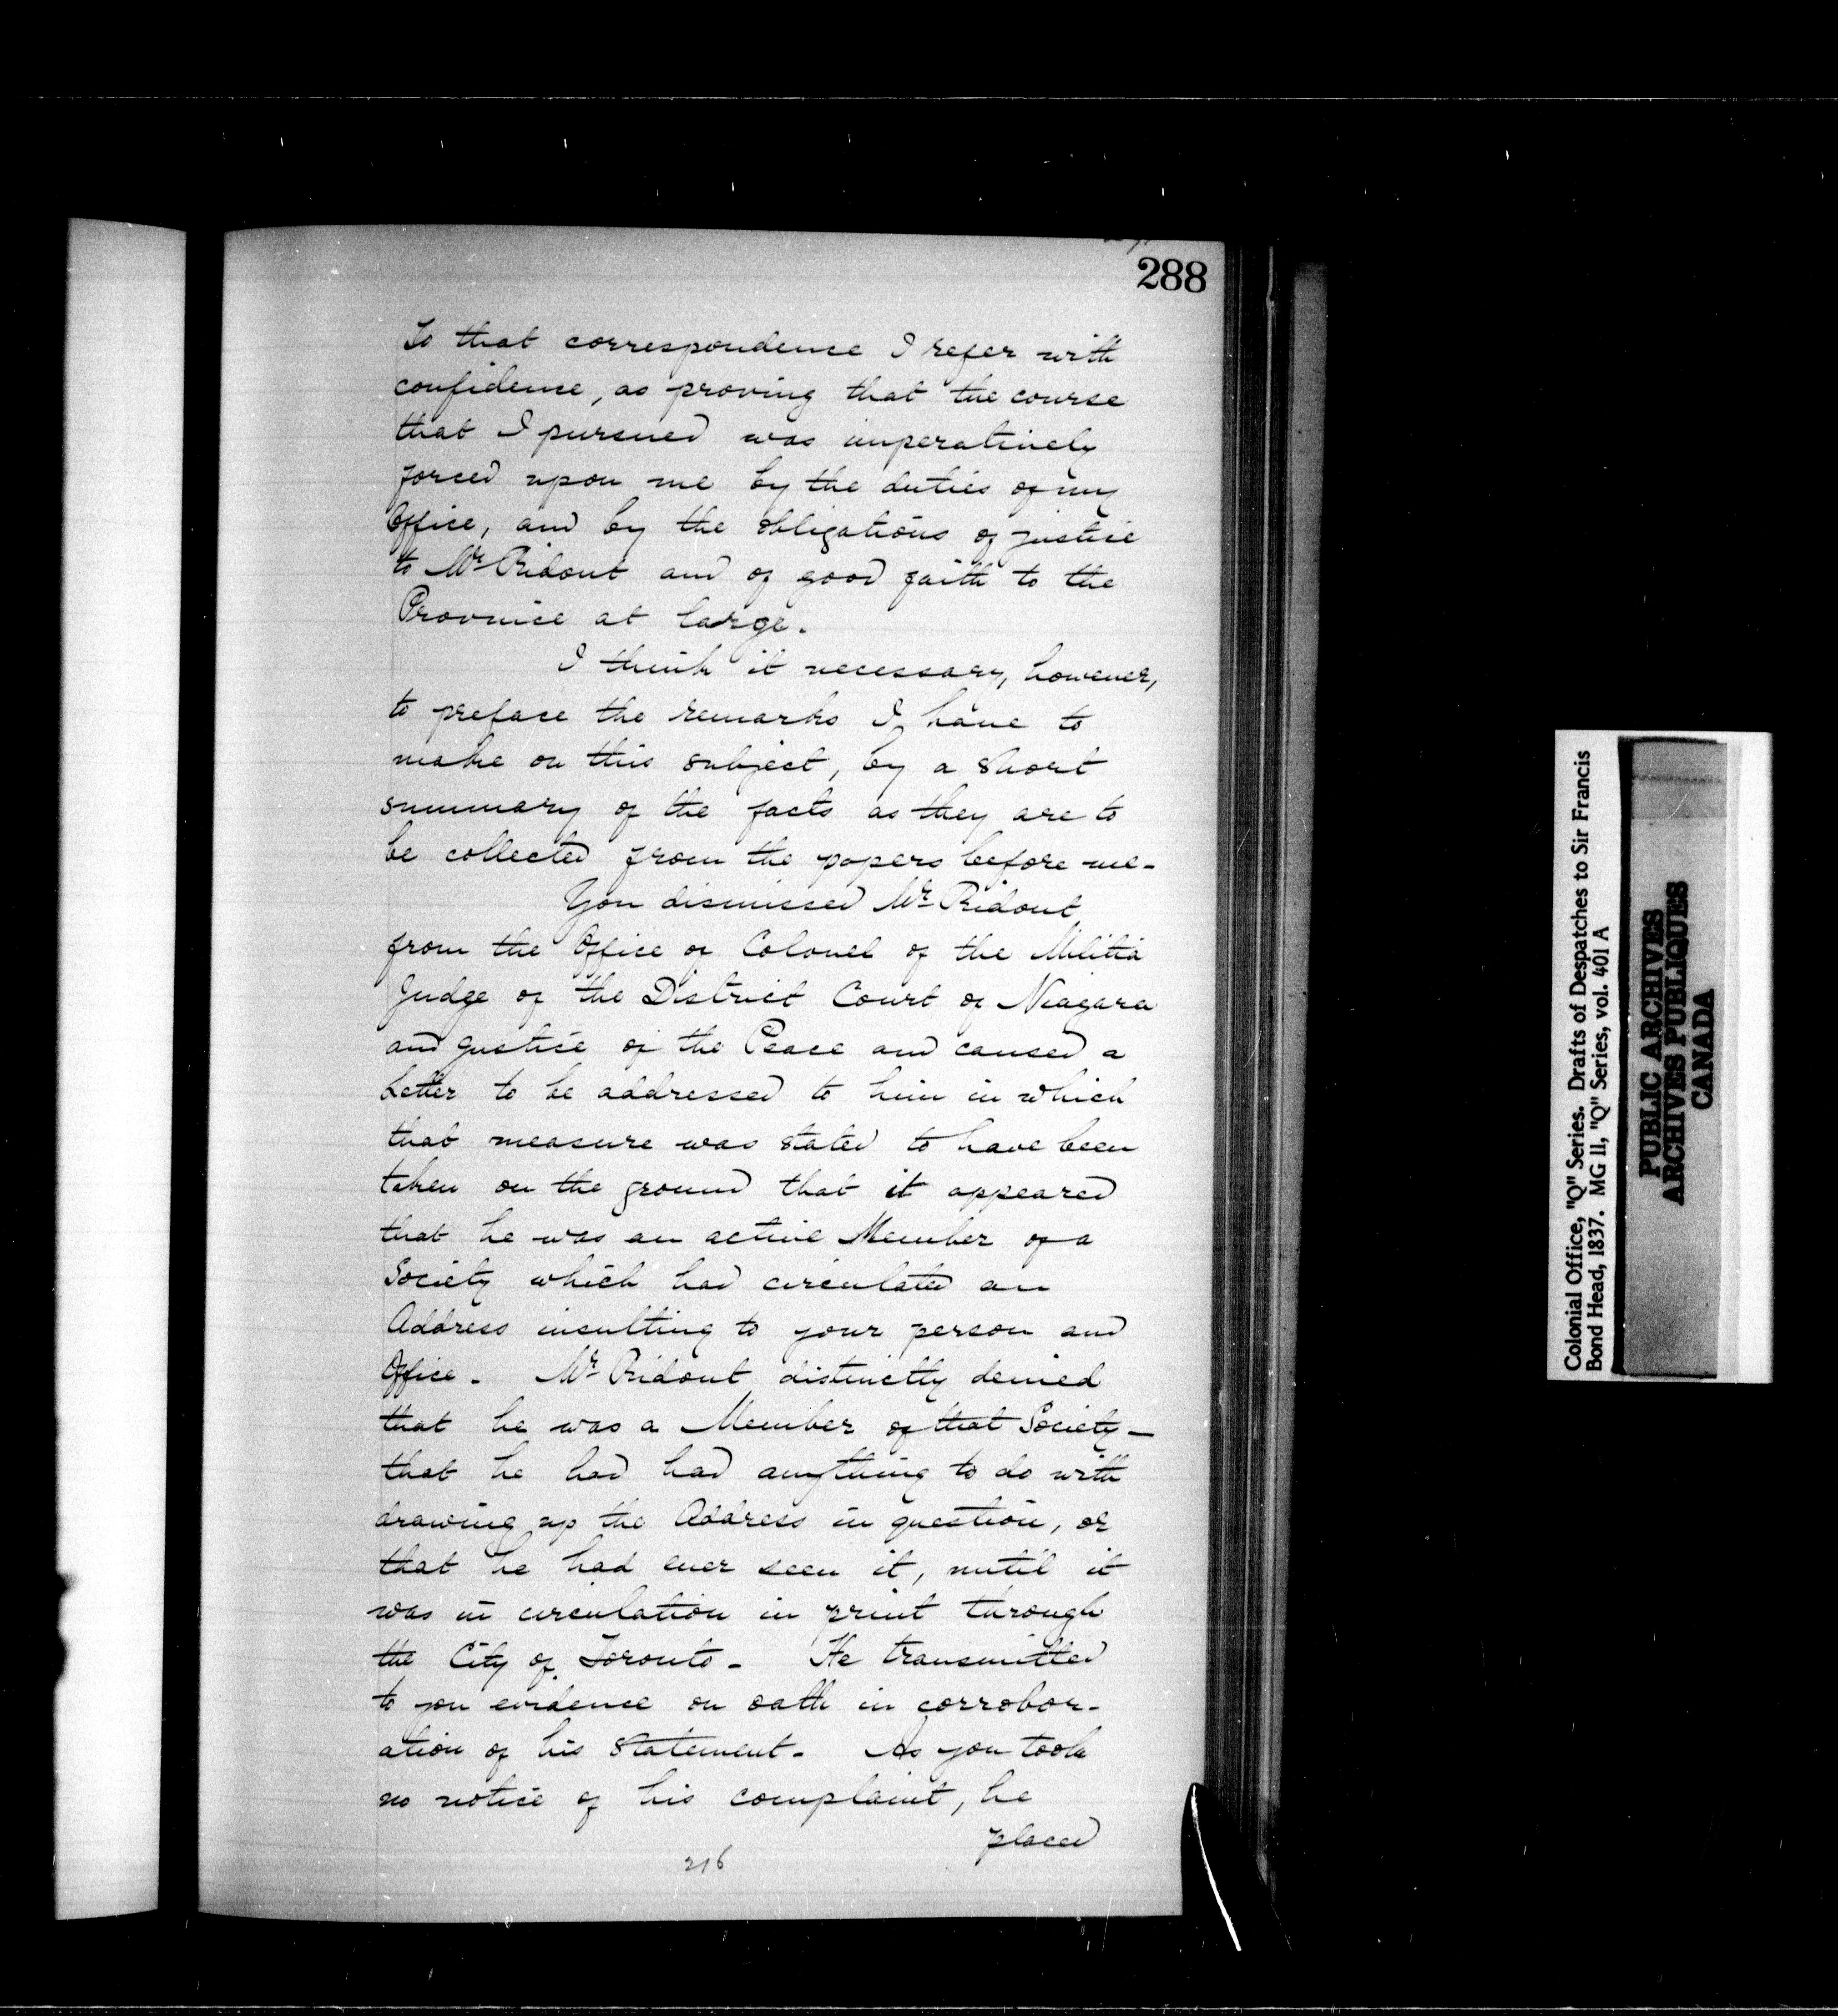 288
To that correspondence I refer with
confidence, as proving that the course
that I pursued was imperatively
forced upon me by the duties of my
Office, and by the obligations of justice
to Mr Ridout and of good faith to the
Province at large.
I think it necessary, however,
to preface the remarks I have to
make on this subject, by a short
summary of the facts as they are to
be collected from the papers before me-
You dismissed Mr Ridout,
from the Office of Colonel of the Militia
Judge of the District Court of Niagara
and Justice of the Peace and caused a
Letter to be addressed to him in which
that measure was stated to have been
taken on the ground that it appeared
that he was an active Member of a
Society which had circulated an
Address insulting to your person and
Office. Mr Ridout distinctly denied
that he was a Member of that Society-
that he had had anything to do with
drawing up the Address in question, or
that he had ever seen it, until it
was in circulation in print through
the City of Toronto- He transmitted
to you evidence on oath in corrobor-
ation of his Statement- As you took
no notice of his complaint, he
placed
216
Colonial Office, "Q" Series. Drafts of Despatches to Sir Francis
Bond Head, 1837. MG 11, "Q" Series, vol. 401 A
PUBLIC ARCHIVES
ARCHIVES PUBLIQUES
CANADA